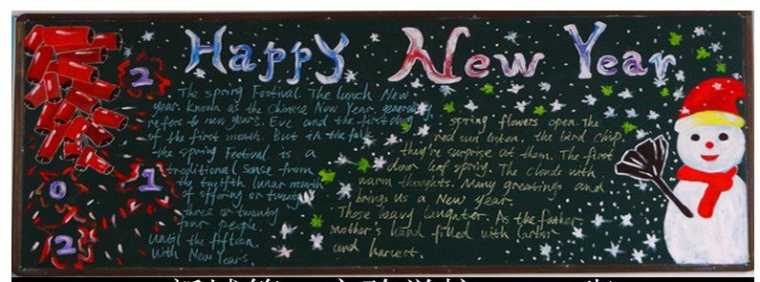 Happy New Year
2
0
1
2
The spring Festival The lunch New
year known as the chinese New Year
refers to new years. Eve and the first day
of the first month. But in the folk
the spring Festival is a
traditional sense from
the twelfth lunar month
of offering or twenty
three or twenty
four people.
Until the fifteen.
With New Years.
spring flowers open. The
red sun listen, the bird chip,
they're surprise at them. The first
down leaf spring. The clouds with
warm thoughts. Many greetings and
brings us a New year.
Those heavy laughter. As the father
mother's hand filled with
and harvest.